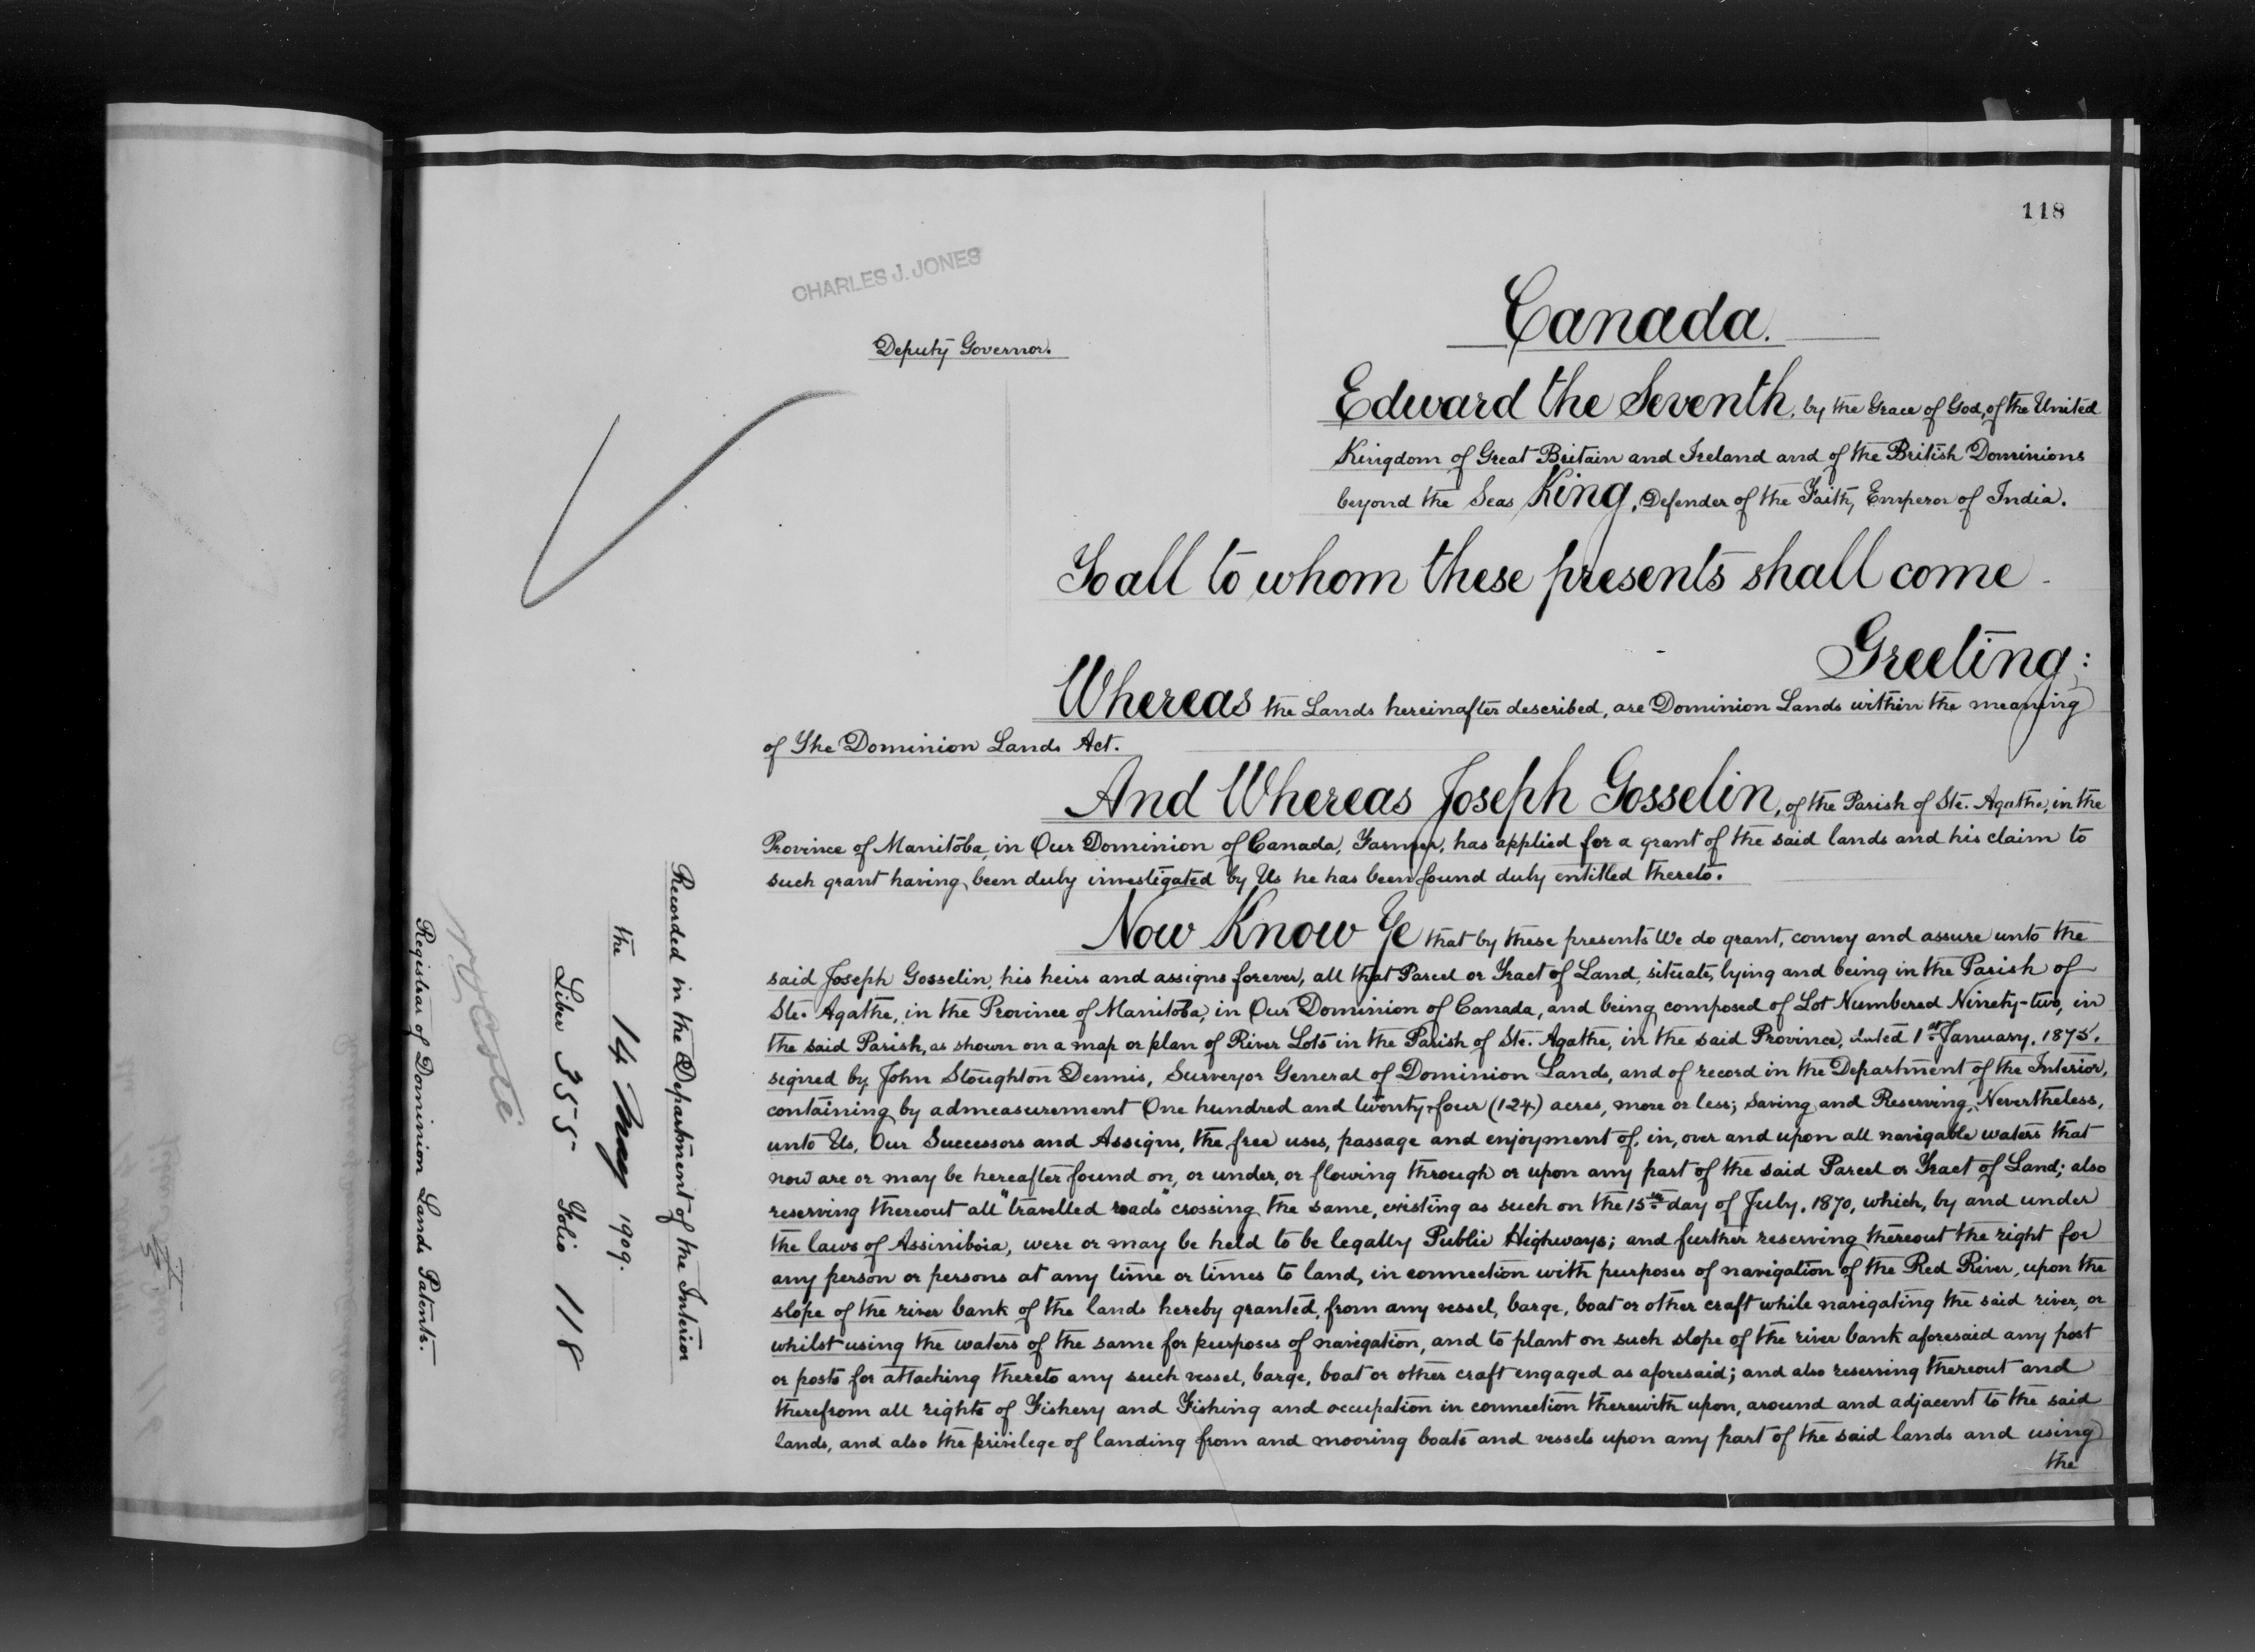 118
CHARLES J. JONES
Deputy Governor.
Canada.
Edward the Seventh, by the Grace of God, of the United
Kingdom of Great Britain and Ireland and of the British Dominions
beyond the Seas King, Defender of the Faith, Emperor of India.
To all to whom these presents shall come
Greeting:
Whereas the Lands hereinafter described, are Dominion Lands within the meaning
of The Dominion Lands Act.
And Whereas Joseph Gosselin, of the Parish of Ste. Agathe, in the
Province of Manitoba, in Our Dominion of Canada, Farmer, has applied for a grant of the said lands and his claim to
such grant having been duly investigated by Us he has been found duly entitled thereto.
Now Know Ye that by these presents We do grant, convey and assure unto the
said Joseph Gosselin, his heirs and assigns forever, all that Parcel or Tract of Land, situate, lying and being in the Parish of
Ste. Agathe, in the Province of Manitoba, in Our Dominion of Canada, and being composed of Lot Numbered Ninety-two, in
the said Parish, as shown on a map or plan of River Lots in the Parish of Ste. Agathe, in the said Province, dated 1st January, 1875,
signed by John Stoughton Dennis, Surveyor General of Dominion Lands, and of record in the Department of the Interior,
containing by admeasurement One hundred and twenty-four (124) acres, more or less; Saving and Reserving, Nevertheless,
unto Us, Our Successors and Assigns, the free uses, passage and enjoyment of, in, over and upon all navigable waters that
now are or may be hereafter found on, or under, or flowing through or upon any part of the said Parcel or Tract of Land; also
reserving thereout all "travelled roads" crossing the same, existing as such on the 15th day of July, 1870, which, by and under
the laws of Assiniboia, were or may be held to be legally Public Highways; and further reserving thereout the right for
any person or persons at any time or times to land, in connection with purposes of navigation of the Red River, upon the
slope of the river bank of the lands hereby granted, from any vessel, barge, boat or other craft while navigating the said river, or
whilst using the waters of the same for purposes of navigation, and to plant on such slope of the river bank aforesaid any post
or posts for attaching thereto any such vessel, barge, boat or other craft engaged as aforesaid; and also reserving thereout and
therefrom all rights of Fishery and Fishing and occupation in connection therewith upon, around and adjacent to the said
lands, and also the privilege of landing from and mooring boats and vessels upon any part of the said lands and using
the
Recorded in the Department of the Interior
the 14 May 1909.
Liber 355 Folio 118
Registrar of Dominion Lands Patents.